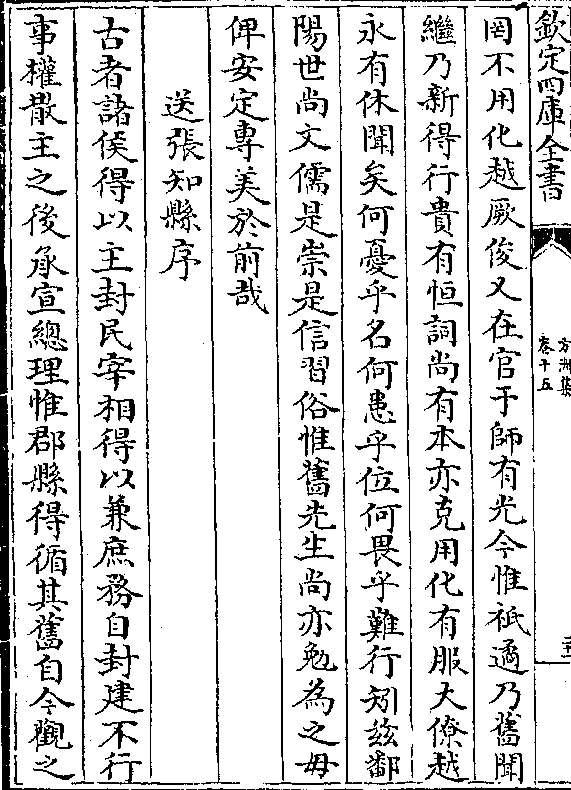 欽定四庫全書
方洲集
卷十五
罔不用化越厥俊乂在官于師有光今惟祗遹乃舊聞
繼乃新得行貴有恒詞尚有本亦克用化有服大僚越
永有休聞矣何憂乎名何患乎位何畏乎難行矧兹鄱
陽世尚文儒是崇是信習俗惟舊先生尚亦勉為之毋
俾安定專美於前哉
送張知縣序
古者諸侯得以主封民宰相得以兼庶務自封建不行
事權散主之後承宣總理惟郡縣得循其舊自今觀之